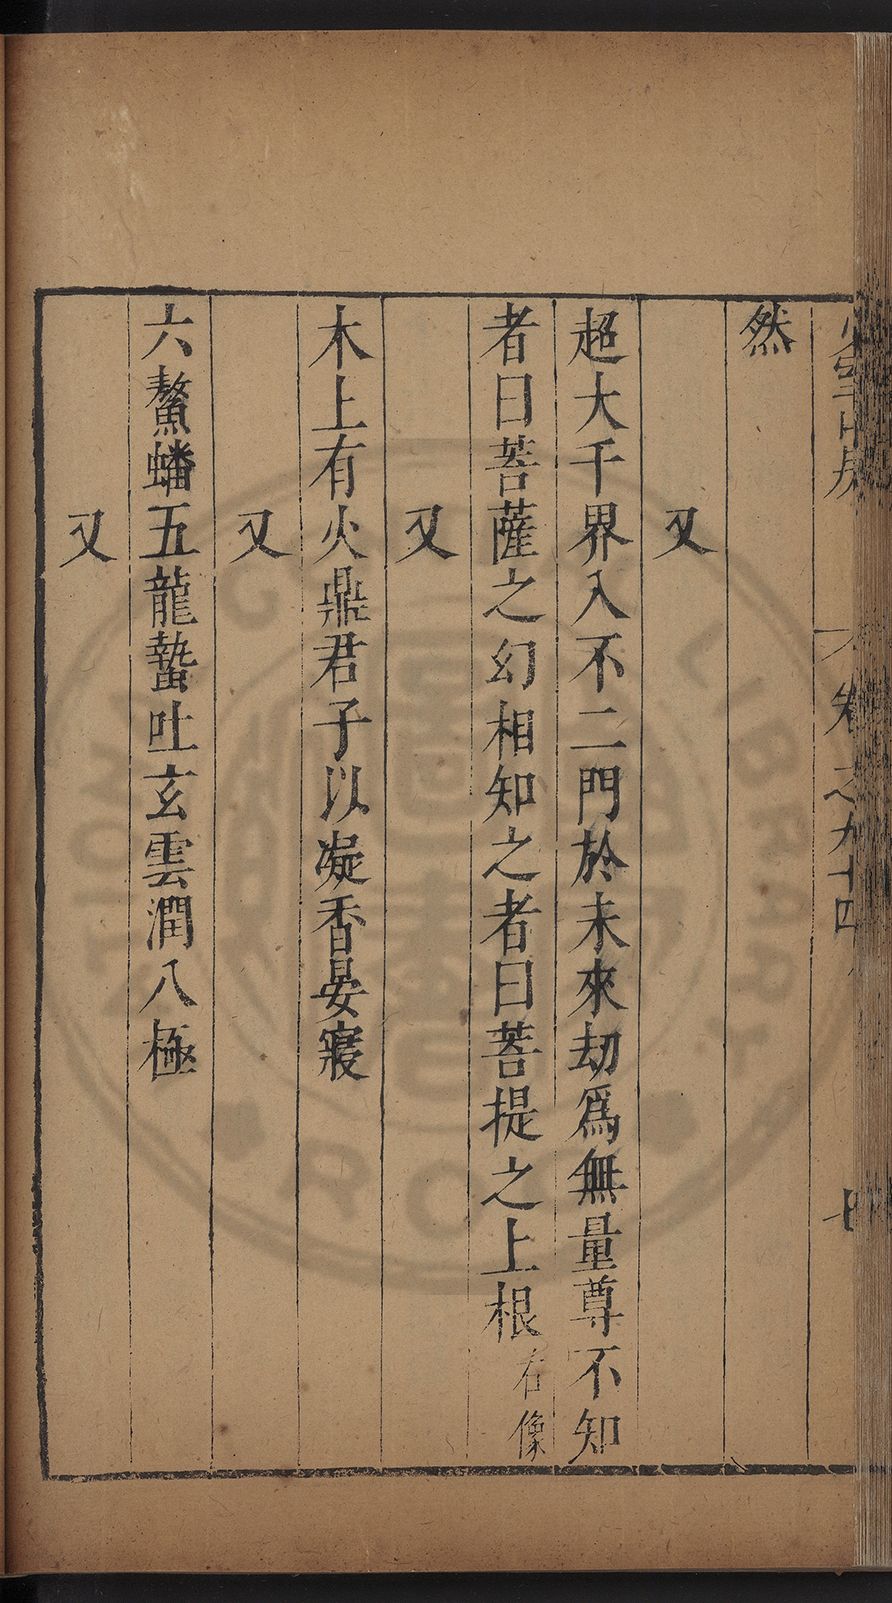 卷之九十四
然
又
超大千界入不二門於未來劫爲無量尊不知
者曰菩薩之幻相知之者曰菩提之上根右像
又
木上有火鼎君子以凝香晏寢
又
六鰲蟠五龍蟄吐玄雲潤八極
又